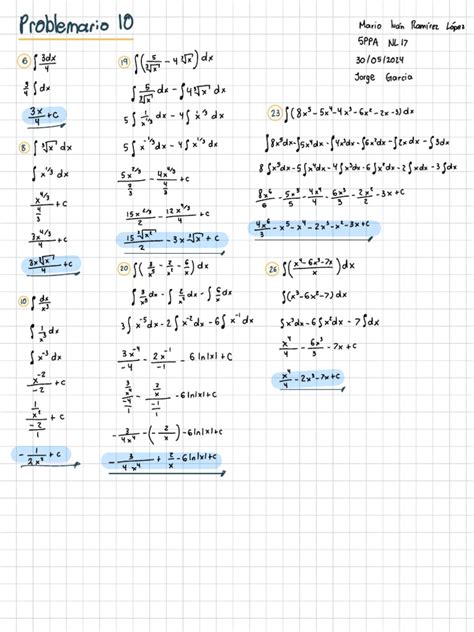 Problemario 10
Mario Iván Ramírez López
5PPA NL17
30/05/2024
Jorge García
6 ∫ 3dx/4
3/4 ∫ dx
3x/4 + c
8 ∫ ∛x dx
∫ x^1/3 dx
x^4/3 / 4/3 + c
3x^4/3 / 4 + c
3x∛x / 4 + c
10 ∫ dx/x³
∫ 1/x³ dx
∫ x^-3 dx
x^-2 / -2 + c
1/x² / -2/1 + c
- 1/2x² + c
19 ∫ (5/∛x - 4∛x) dx
∫ 5/∛x dx - ∫ 4∛x dx
5 ∫ 1/x^1/3 dx - 4 ∫ x^1/3 dx
5 ∫ x^-1/3 dx - 4 ∫ x^1/3 dx
5x^2/3 / 2/3 - 4x^4/3 / 4/3 + c
15x^2/3 / 2 - 12x^4/3 / 4 + c
15∛x² / 2 - 3x∛x + c
20 ∫ (3/x⁵ - 2/x² - 6/x) dx
∫ 3/x⁵ dx - ∫ 2/x² dx - ∫ 6/x dx
3 ∫ x^-5 dx - 2 ∫ x^-2 dx - 6 ∫ x^-1 dx
3x^-4 / -4 - 2x^-1 / -1 - 6 ln|x| + c
3/x⁴ / -4/1 - 2/x / -1/1 - 6 ln|x| + c
- 3/4x⁴ - (- 2/x) - 6 ln|x| + c
- 3/4x⁴ + 2/x - 6 ln|x| + c
23 ∫ (8x⁵ - 5x⁴ - 4x³ - 6x² - 2x - 3) dx
∫ 8x⁵dx - ∫ 5x⁴dx - ∫ 4x³dx - ∫ 6x²dx - ∫ 2x dx - ∫ 3dx
8 ∫ x⁵dx - 5 ∫ x⁴dx - 4 ∫ x³dx - 6 ∫ x²dx - 2 ∫ x dx - 3 ∫ dx
8x⁶/6 - 5x⁵/5 - 4x⁴/4 - 6x³/3 - 2x²/2 - 3x + c
4x⁶/3 - x⁵ - x⁴ - 2x³ - x² - 3x + c
26 ∫ (x⁴ - 6x³ - 7x / x) dx
∫ (x³ - 6x² - 7) dx
∫ x³dx - 6 ∫ x²dx - 7 ∫ dx
x⁴/4 - 6x³/3 - 7x + c
x⁴/4 - 2x³ - 7x + c